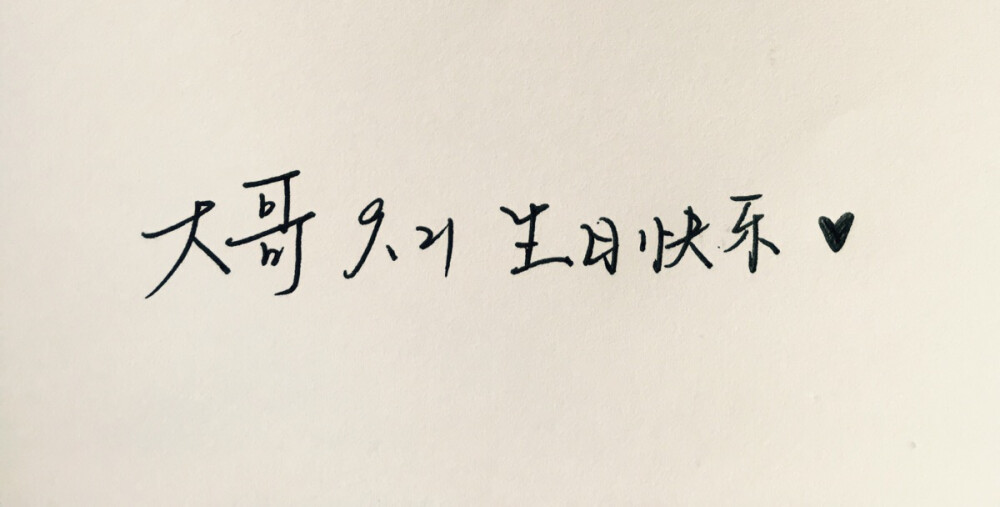 大哥 9.21 生日快乐 ♥